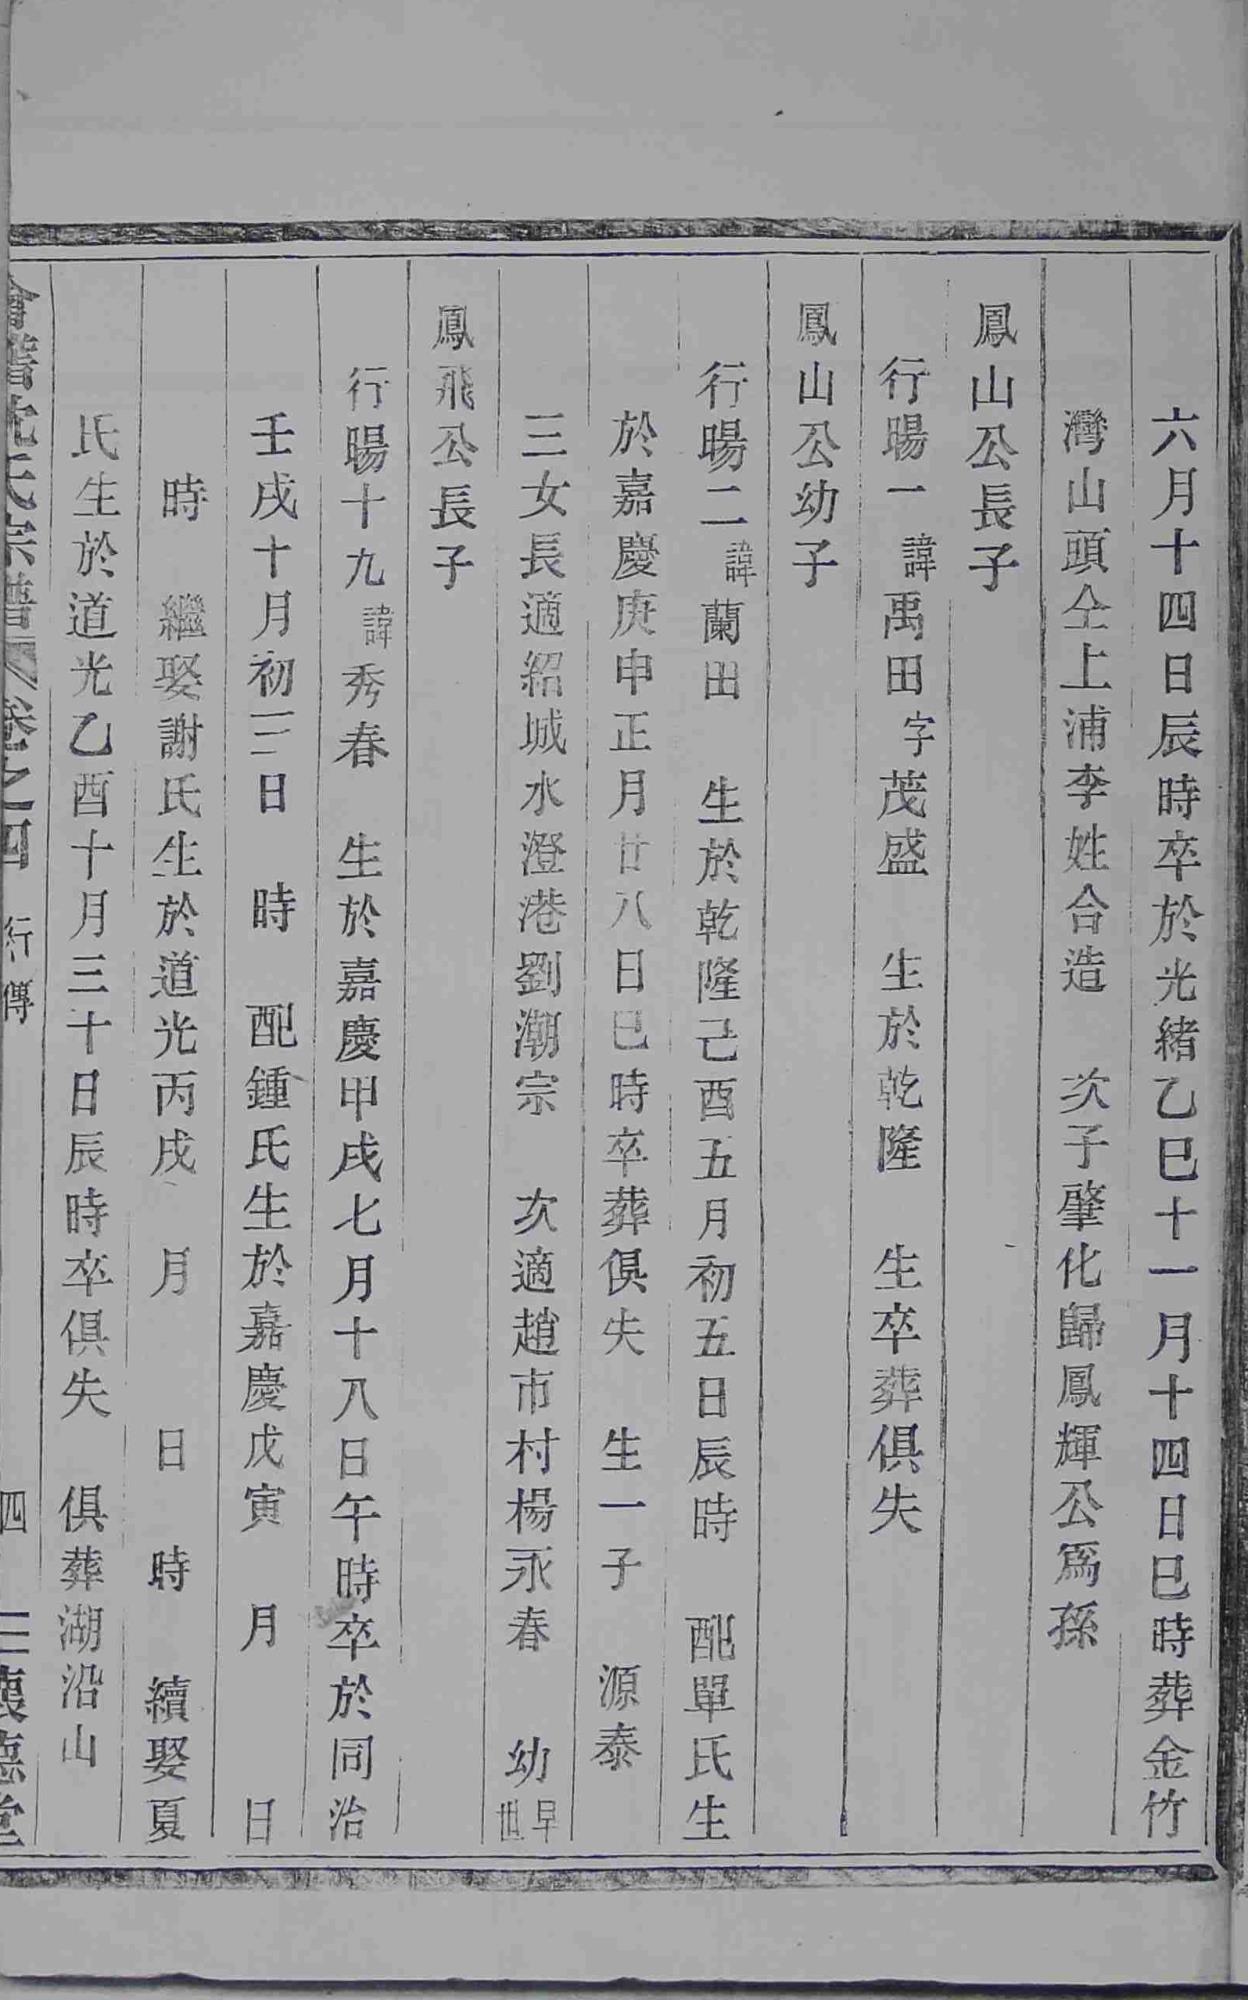 六月十四日辰時卒於光緒乙巳十一月十四日巳時葬金竹
灣山頭仝上浦李姓合造　次子肇化歸鳳輝公爲孫
鳳山公長子
行暘一諱禹田字茂盛　生於乾隆　生卒葬俱失
鳳山公幼子
行暘二諱蘭田　生於乾隆己酉五月初五日辰時　配單氏生
於嘉慶庚申正月廿八日巳時卒葬俱失　生一子　源泰
三女長適紹城水澄港劉潮宗　次適趙市村楊永春　幼早世
鳳飛公長子
行暘十九諱秀春　生於嘉慶甲戌七月十八日午時卒於同治
壬戌十月初三日　時　配鍾氏生於嘉慶戊寅　月　　日
時　繼娶謝氏生於道光丙戌　月　　日　時　續娶夏
氏生於道光乙酉十月三十日辰時卒俱失　俱葬湖沿山
會稽沈氏宗譜　卷之四　行傳　四　二　德堂